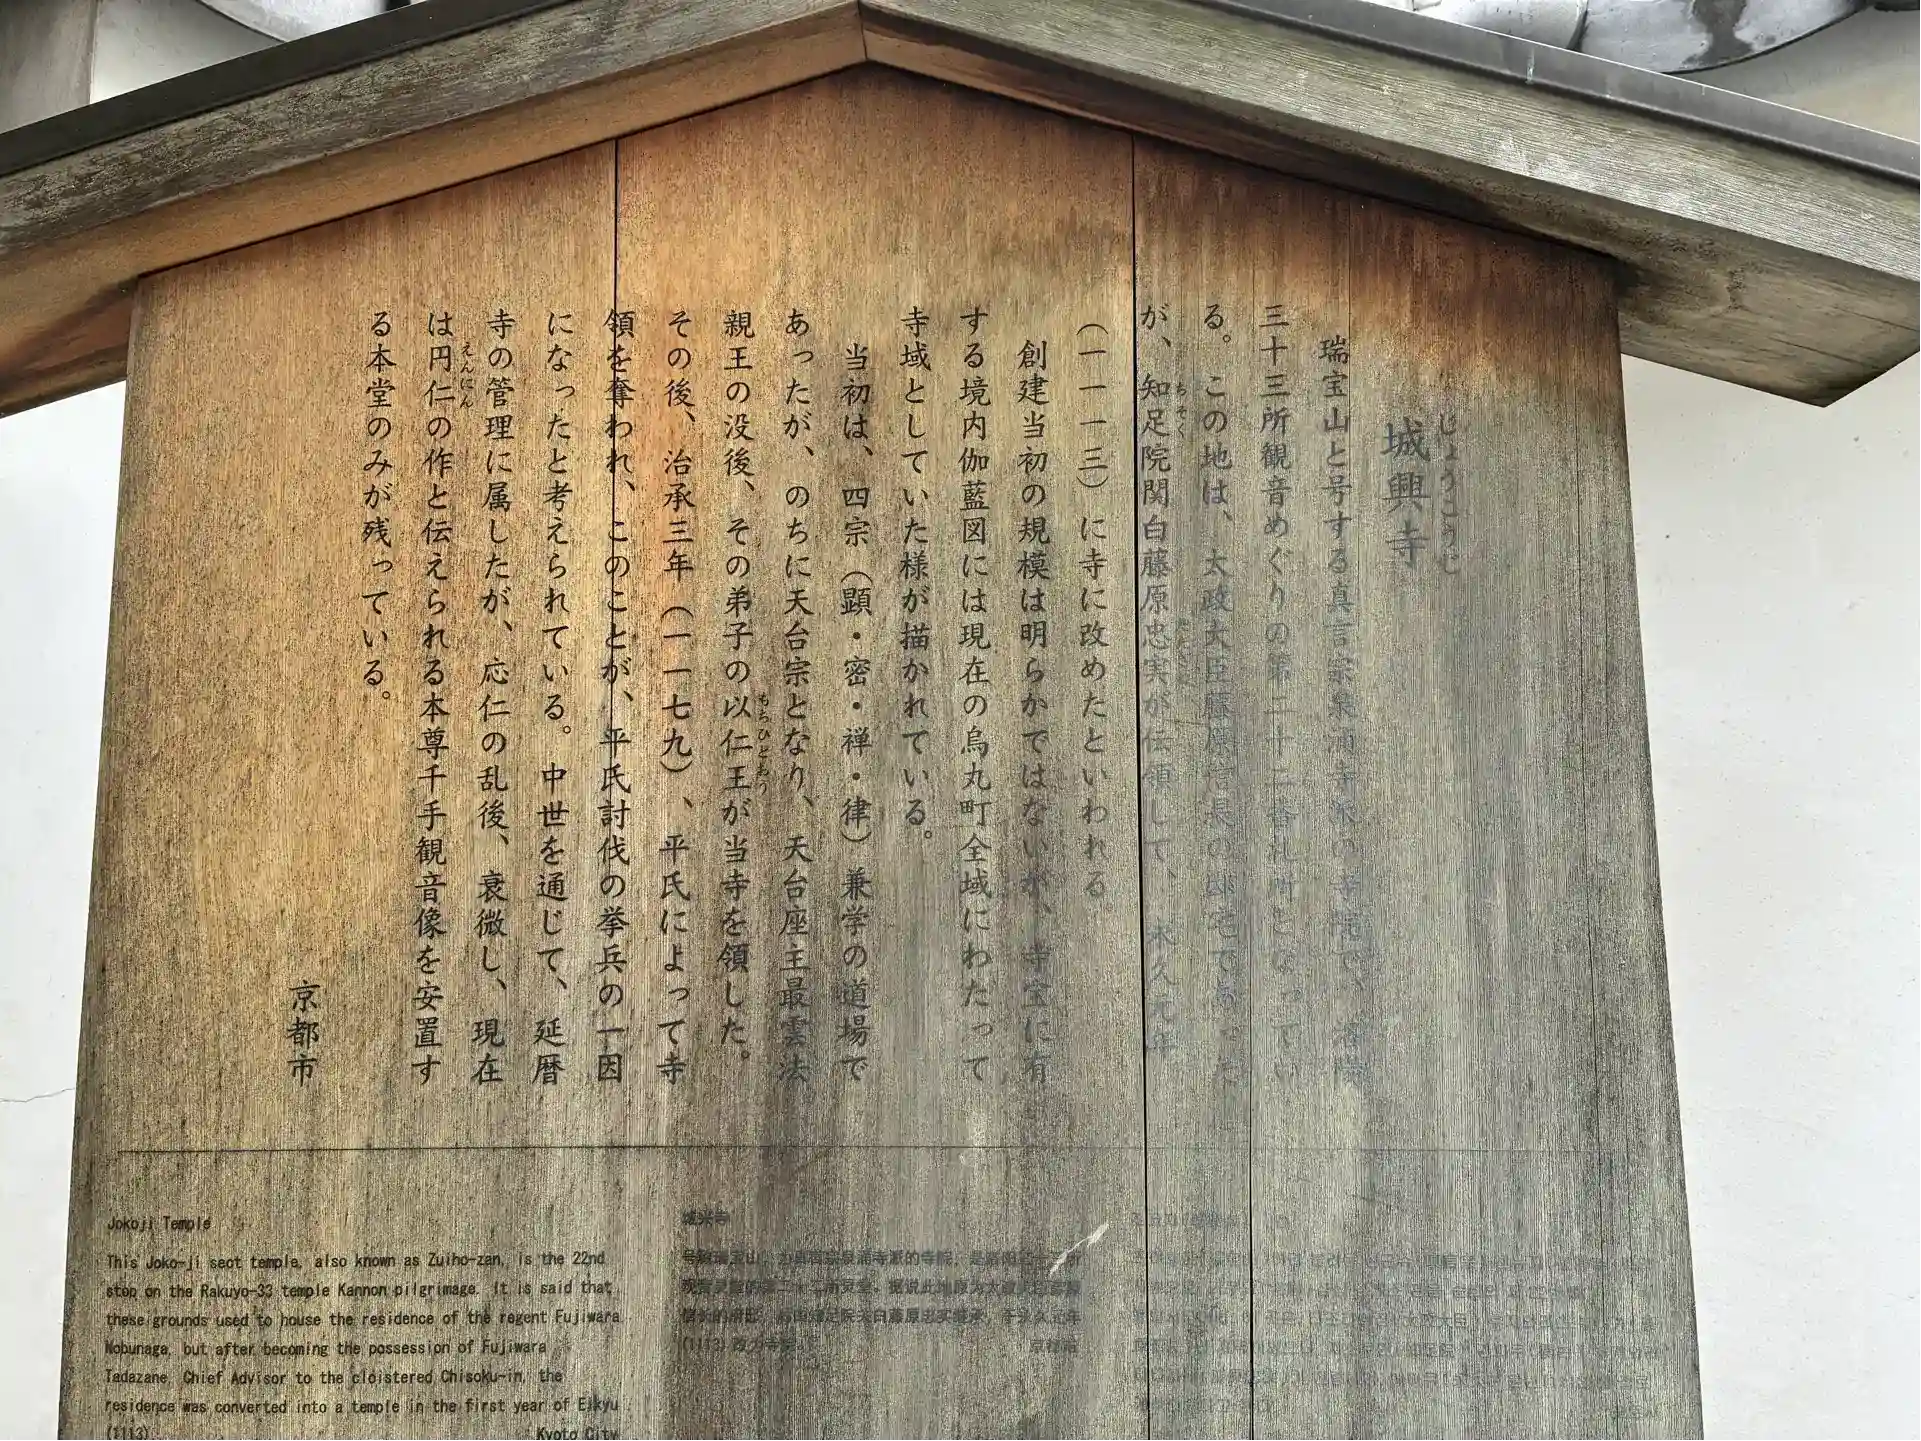 じょうこうじ
城興寺
瑞宝山と号する真言宗泉涌寺派の寺院で、洛陽
三十三所観音めぐりの第二十二番札所となってい
る。この地は、太政大臣藤原信長の邸宅であった
が、知足院関白藤原忠実が伝領して、永久元年
ちそく
(一一一三)に寺に改めたといわれる。
創建当初の規模は明らかではないが、寺宝に有
する境内伽藍図には現在の烏丸町全域にわたって
寺域としていた様が描かれている。
当初は、四宗(顕・密・禅・律)兼学の道場で
あったが、のちに天台宗となり、天台座主最雲法
親王の没後、その弟子の以仁王が当寺を領した。
もちひとおう
その後、治承三年(一一七九)、平氏によって寺
領を奪われ、このことが、平氏討伐の挙兵の一因
になったと考えられている。中世を通じて、延暦
寺の管理に属したが、応仁の乱後、衰微し、現在
は円仁の作と伝えられる本尊千手観音像を安置す
えんにん
る本堂のみが残っている。
京都市
Jokoji Temple
This Joko-ji sect temple, also known as Zuiho-zan, is the 22nd
stop on the Rakuyo-33 temple Kannon pilgrimage. It is said that
these grounds used to house the residence of the regent Fujiwara
Nobunaga, but after becoming the possession of Fujiwara
Tadazane, Chief Advisor to the cloistered Chisoku-in, the
residence was converted into a temple in the first year of Eikyu
(1113)
Kyoto City
城兴寺
号称瑞宝山 真言宗泉涌寺派的寺院，是洛阳三十三所
观音灵 的第二十二 。据说此地原为太政大臣藤原
信长的府邸， 知足院关白藤原忠实继承，于永久元年
(1113) 改为寺院。
京都市